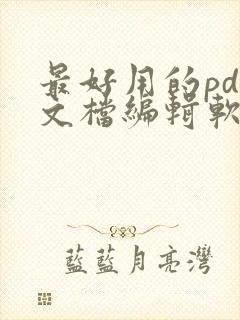 最好用的pd
文檔編輯軟
藍藍月亮灣